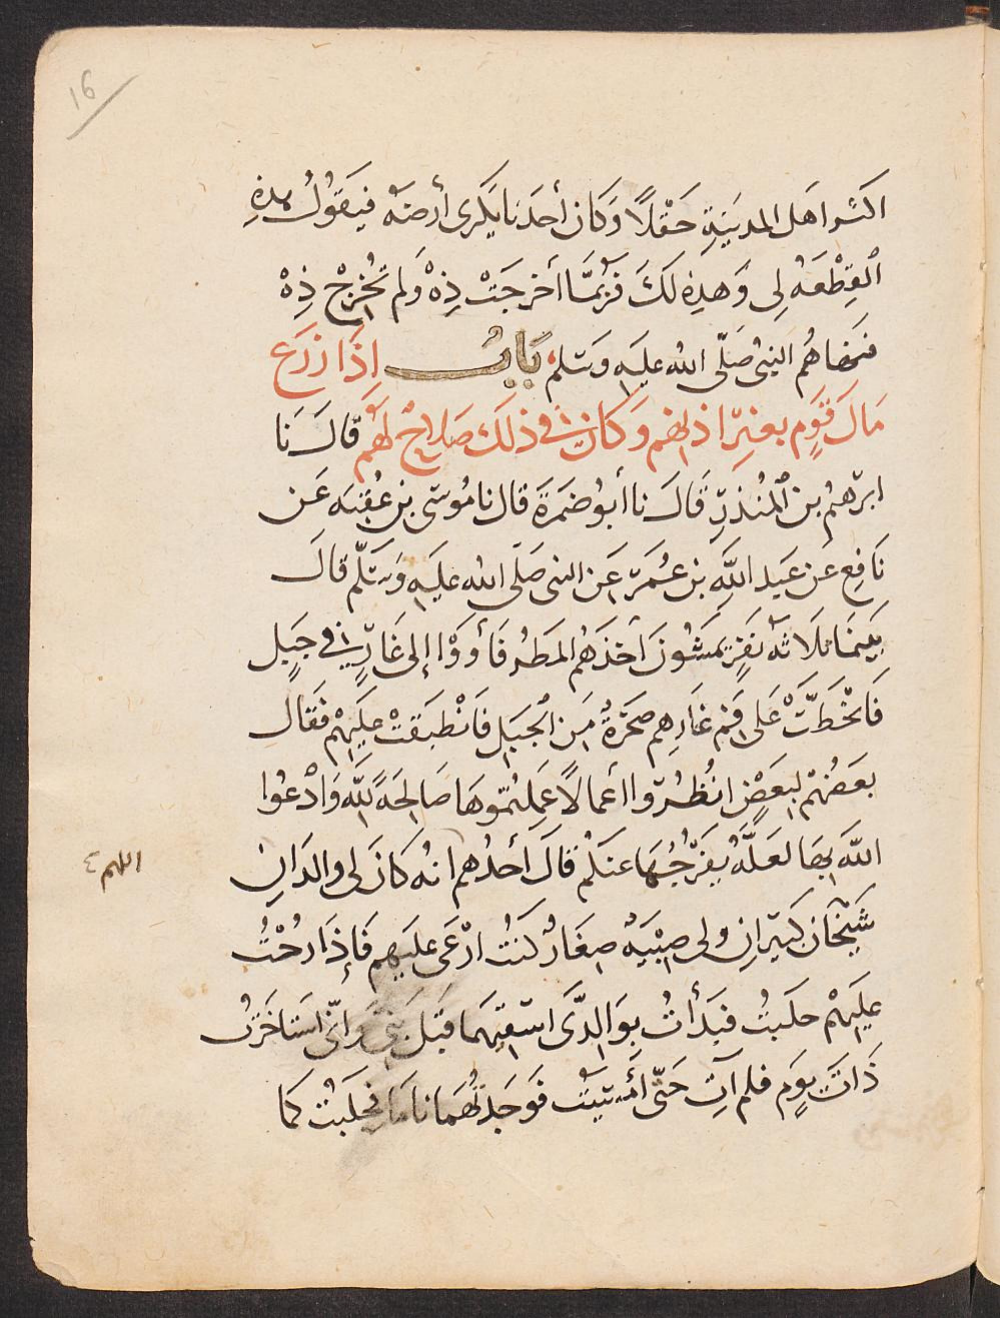 16
اكثر اهل المدينة حَقْلًا وَكان أحدنا يكرى أرضه فيقولُ هذه
القِطْعَه لِى وَهذِه لكَ فَربَّما أخرجَتْ ذِهْ وَلم تُخرِجْ ذِهْ
فنهاهُم النبىُ صَلّى الله عليه وسَلم بَابُ اِذَا زرَع
مَال قَوْمٍ بغيرِ اذنهم وَكان فى ذلك صَلاحٌ لهُم قال نَا
ابرٰهيم بن المُنذرِ قالَ نا أبُو ضمرَةَ قال نا مُوسى بن عُقبه عَن
نَافِع عَن عَبد اللَّه بن عُمَر عَن النبى صَلى الله عليه وَسَلَّم قالَ
بَينما ثلَاثه نَفَرٍ يمشُونَ أخذَهُم المطرُ فَأَوَوْا إلى غَارٍ فى جبَلٍ
فَانْحَطَّتْ عَلى فَم غَارهِم صخرَةٌ مِن الجبَل فَانْطبَقتْ عليهمْ فقال
بعضُهمْ لبعضٍ انظُرُوا أعمالًا عَمِلتُموها صَالحَةً للَّهِ وَادْعُوا
اللَّه بهَا لعَلَّهُ يفرِّجُهَا عنكُم قَالَ أحدُهم انهُ كانَ لى والدَانِ
اللهم
شيخَان كبيرَانِ ولى صِبْيَةٌ صِغَارٌ كنتُ ارْعَى عليهم فَإذَا رحْتُ
عليهمْ حلبتُ فبَدَأتُ بوَالِدَىَّ اسْقيهما قبل بَنِىَّ وَانى اسْتاخَرْتُ
ذَاتَ يوَمٍ فلم آتِ حَتّى أمْسَيْتُ فَوجَدتُهما نامَا فحلبتُ كما